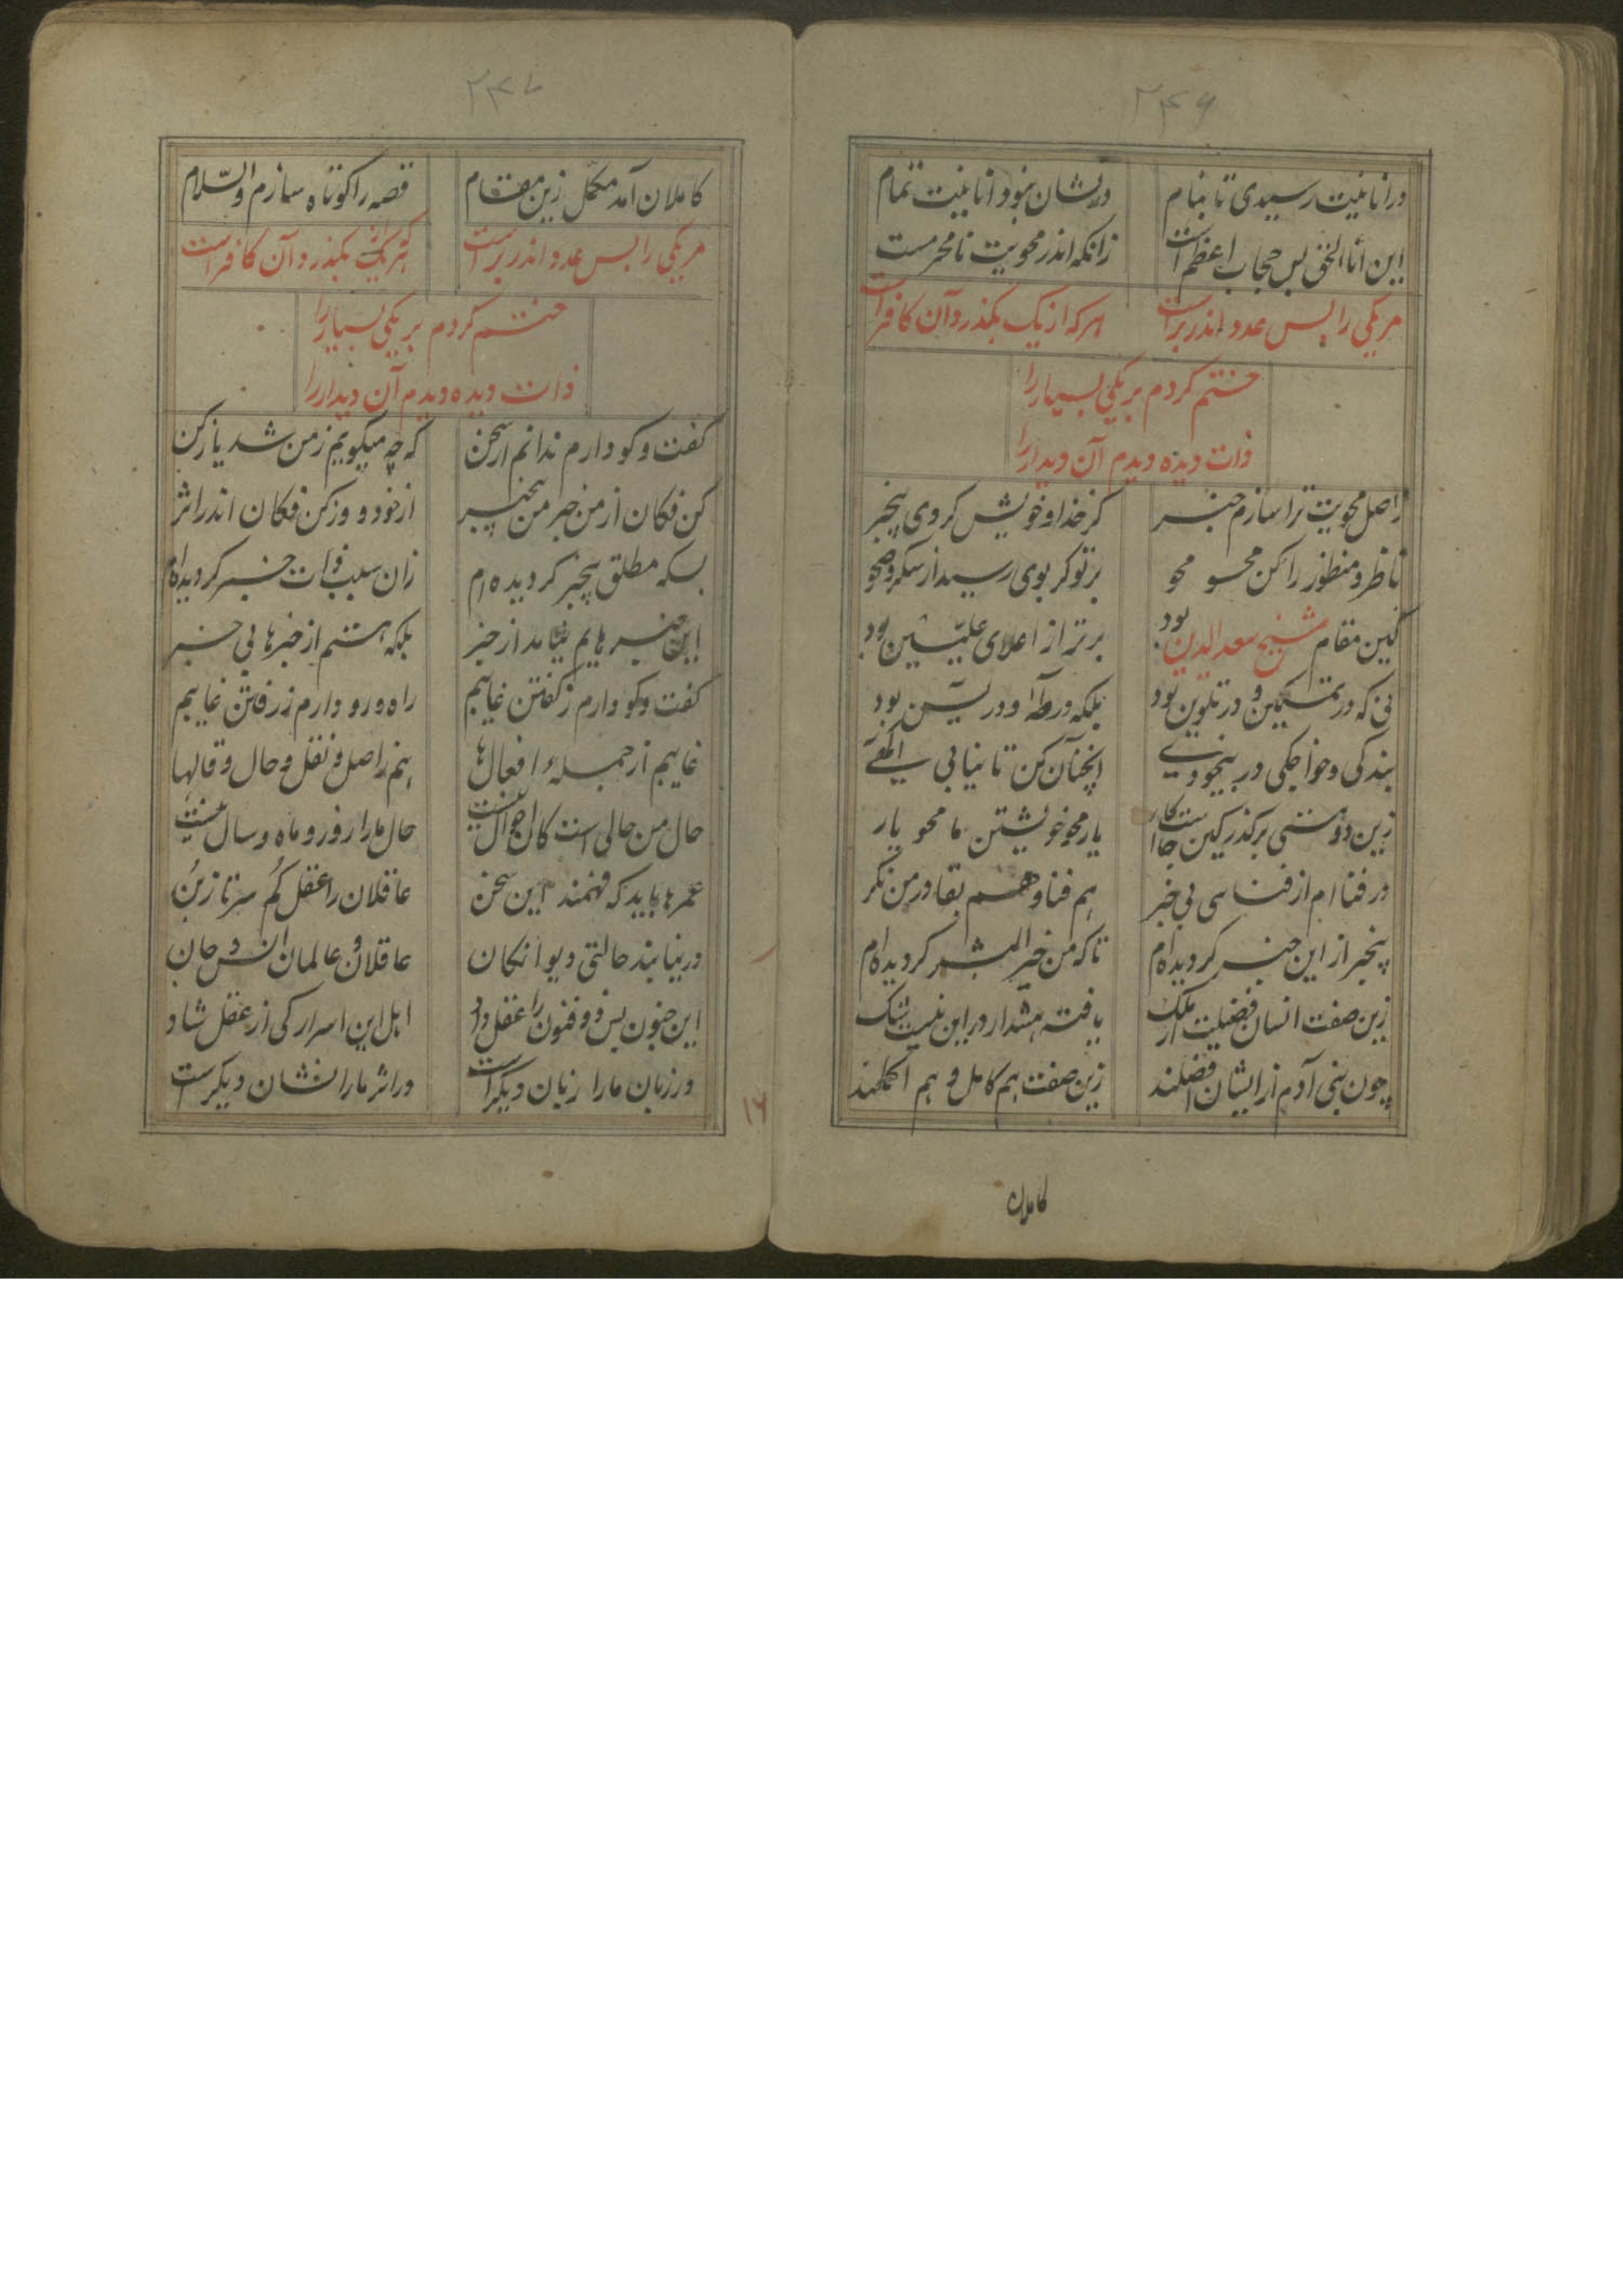 ۲۴۶
در انانیت رسیدی تا بنام در نشان نبود انانیت تمام
این انا الحق بس حجاب اعظم است زانکه اندر محویت نامحرمست
مر یکی را بس عدد اندر برست هر که از یک بگذرد آن کافر است
ختم کردم بر یکی بسیار را
ذات دیده دیدم آن دیدار را
ز اصل محویت ترا سازم خبر کز خدا و خویش گردی بیخبر
ناظر و منظور را کن محو محو بر تو گر بوی رسید از سکر و صحو
کین مقام شیخ سعد الدین بود برتر از اعلای علیین بود
نی که در تمکین و در تلوین بود بلکه در طه و در یسین بود
بندگی و خواجگی در بیخودی آنچنان کن تا نیابی
زین دو هستی برگذر کین جاست کار یار محو خویشتن ما محو یار
در فنا ام از فنا سی بی خبر هم فنا و هم بقا در من نگر
بیخبر از این خبر گردیده ام تا که من خیر البشر گردیده ام
زین صفت انسان فضیلت از ملک یافته هشدار در این نیست شک
چون بنی آدم از ایشان افضلند زین صفت هم کامل و هم اکملند
کاملان
۲۴۷
کاملان آمد مکمل زین مقام قصه را کوتاه سازم والسلام
مر یکی را بس عدد اندر برست هر که از یک بگذرد آن کافر است
ختم کردم بر یکی بسیار را
ذات دیده دیدم آن دیدار را
گفت و گو دارم ندانم از سخن که چه میگویم ز من شد یاز کن
کن فکان از من خبر من بیخبر از خود و وز کن فکان اندر اثر
بسکه مطلق بیخبر گردیده ام زان سبب ذات خبر گردیده ام
این خبرهایم نیامد از خبر بلکه هستم از خبرها بی خبر
گفت و گو دارم ز گفتن غایبم راه و رو دارم ز رفتن غایبم
غایبم از جمله افعال ها هم ز اصل و نقل و حال و قالها
حال من حالی است کان احوال نیست حال ما را روز و ماه و سال نیست
عمرها باید که فهمند این سخن عاقلان را عقل گم سر تا ز بن
در نیابند حالتی دیوانگان عاقلان و عالمان انس و جان
این جنون بس ذو فنون را عقل داد اهل این اسرار کی از عقل شاد
در زبان ما را زبان دیگر است در اثر ما را نشان دیگرست
۱۶